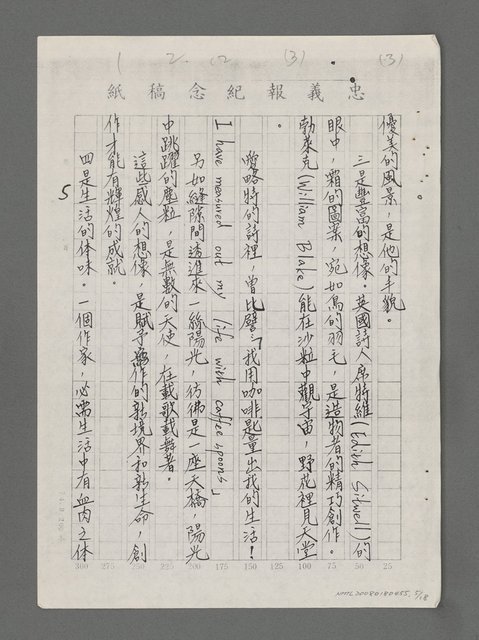 1 2 (2 (3) (3)
忠義報紀念稿紙
優美的風景，是他的手貌。
三是豐富的想像。英國詩人席特維(Edith Sitwell)的
眼中，霜的圖案，宛如鳥的羽毛，是造物者的精巧創作。
勃萊克(William Blake)能在沙粒中觀宇宙，野花裡見天堂
。
噯略特的詩裡，曾比譬：「我用咖啡匙量出我的生活！
I have measured out my life with coffee spoons」
另如縫隙間透進來一絲陽光，彷彿是一座天橋，陽光
中跳躍的塵粒，是無數的天使，在載歌載舞著。
這些感人的想像，是賦予寫作的新境界和新生命，創
作才能有輝煌的成就。
5
四是生活的体味。一個作家，必需生活中有血肉之体
300 275 250 225 200 175 150 125 100 75 50 25
NMTL20080180455, 5/18